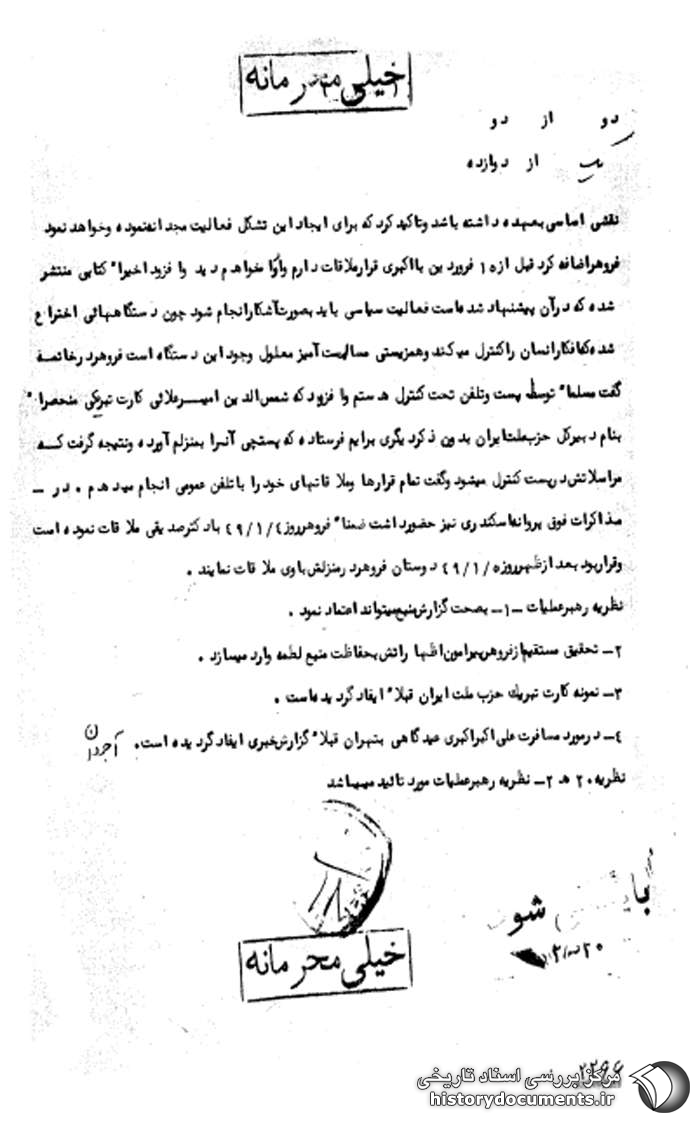 خیلی محرمانه
دو از دو
یک از دوازده
نقشی اساسی بعهده داشته باشد وتاکید کرد که برای ایجاد این تشکل فعالیت مجدانه‌نموده وخواهد نمود
فروهراضافه کرد قبل از ۱۵ فروردین بااکبری قرارملاقات دارم واورا خواهم دید وا فزود اخیرا" کتابی منتشر
شده که درآن پیشنهاد شده‌است فعالیت سیاسی باید بصورت‌آشکارانجام شود چون دستگاههائی اختراع
شده‌که‌افکارانسان راکنترل میکند وهمزیستی مسالمت آمیز معلول وجود این دستگاه است فروهردرخاتمه
گفت مسلما" توسط پست وتلفن تحت کنترل هستم وا فزود که شمس‌الدین امیرعلائی کارت تبریکی منحصرا"
بنام دبیرکل حزب‌ملت‌ایران بدون ذکر دیگری برایم فرستاده که پستچی آنرا بمنزلم آورده ونتیجه گرفت کـه
مراسلاتش‌درپست کنترل میشود وگفت تمام قرارها وملاقاتهای خود را باتلفن عمومی انجام میدهم . در -
مذاکرات فوق پروانه‌اسکندری نیز حضورداشت ضمنا" فروهرروز ۴۹/۱/۴ بادکترصدیقی ملاقات نموده است
وقراربود بعد ازظهرروز ۴۹/۱/۵ دوستان فروهردرمنزلش‌باوی ملاقات نمایند .
نظریه رهبرعملیات -۱- بصحت گزارش‌منبع‌میتواند اعتماد نمود .
۲- تحقیق مستقیم‌ازفروهرپیرامون‌اظهاراتش‌بحفاظت منبع لطمه وارد میسازد .
۳- نمونه کارت تبریک حزب ملت ایران قبلا" ایفاد گردیده‌است .
۴- درمورد مسافرت علی‌اکبراکبری عیدگاهی بتهران قبلا" گزارش‌خبری ایفاد گردیده است.
نظریه ۲۰ هـ ۲- نظریه رهبرعملیات مورد تائید میباشد
خیلی محرمانه
۲۲۹۶
مرکز بررسی اسناد تاریخی
historydocuments.ir